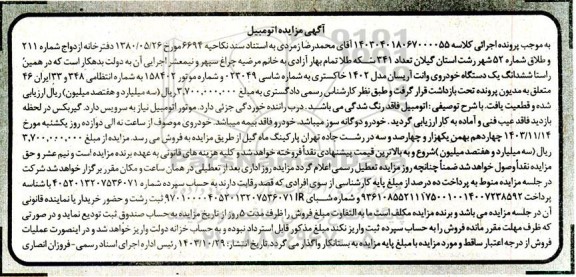 آگهی مزایده اتومبیل
به موجب پرونده اجرائی کلاسه ۱۴۰۳۰۴۰۱۸۰۶۷۰۰۰۰۵۵ آقای محمدرضا زمردی به استناد سند نکاحیه ۶۶۹۴ مورخ ۱۳۸۰/۰۵/۲۶ دفترخانه ازدواج شماره ۲۱۱
و طلاق شماره ۵۲ شهر رشت استان گیلان تعداد ۳۴۱ سکه طلا تمام بهار آزادی به خانم مرضیه چراغ سپهر و نیمعشر اجرایی آن به دولت بدهکار است که در همین
راستا ششدانگ یک دستگاه خودروی وانت آریسان مدل ۱۴۰۲ خاکستری به شماره شاسی ۰۲۳۰۴۹ و شماره موتور ۱۵۸۴۰۲ به شماره انتظامی ۳۴۸ و ۳۳ ایران ۴۶
متعلق به مدیون پرونده تحت بازداشت قرار گرفت و طبق نظر کارشناس رسمی دادگستری به مبلغ ۳,۷۰۰,۰۰۰,۰۰۰ ریال (سه میلیارد و هفتصد میلیون) ریال ارزیابی
شده و قطعیت یافت. با شرح توصیفی : اتومبیل فاقد رنگ شدگی می باشد. درب راننده خوردگی جزئی دارد. موتور اتومبیل نیاز به سرویس دارد. گیربکس در لحظه
بازدید فاقد عیب فنی و آماده به کار ارزیابی گردید. خودرو دوگانه سوز میباشد. خودرو فاقد بیمه میباشد. خودروی موصوف از ساعت نه الی دوازده روز یکشنبه مورخ
۱۴۰۳/۱۱/۱۴ چهاردهم بهمن یکهزار و چهارصد و سه در رشت جاده تهران پارکینگ ماه گیل از طریق مزایده به فروش می رسد. مزایده از مبلغ ۳,۷۰۰,۰۰۰,۰۰۰
ریال (سه میلیارد و هفتصد میلیون) شروع و به بالاترین قیمت پیشنهادی نقداً فروخته خواهد شد و کلیه هزینه های قانونی به عهده برنده مزایده است و نیم عشر و حق
مزایده نقداً وصول خواهد شد ضمناً چنانچه روز مزایده تعطیل رسمی اعلام گردد مزایده روز اداری بعد از تعطیلی در همان ساعت و مکان مقرر برگزار خواهد شد شرکت
در جلسه مزایده منوط به پرداخت ده درصد از مبلغ پایه کارشناسی از سوی افرادی که قصد رقابت دارند به حساب سپرده شماره ۴۰۵۲۰۱۳۲۰۷۵۳۶۰۷۱ با شناسه
پرداخت و شماره شبای IR و ثبت رشت و حضور خریدار یا نماینده قانونی
آن در جلسه مزایده می باشد و برنده مزایده مکلف است ما به التفاوت مبلغ فروش را ظرف مدت ۵ روز از تاریخ مزایده به حساب صندوق ثبت تودیع نماید و در صورتی
که ظرف مهلت مقرر مانده فروش را به حساب سپرده ثبت واریز نکند مبلغ مذکور قابل استرداد نبوده و به حساب خزانه دولت واریز خواهد شد و در اینصورت عملیات
فروش از درجه اعتبار ساقط و مورد مزایده با مبلغ پایه مزایده به بستانکار واگذار می گردد. تاریخ انتشار: ۱۴۰۳/۱۰/۲۹ رئیس اداره اجرای اسناد رسمی - فروزان انصاری